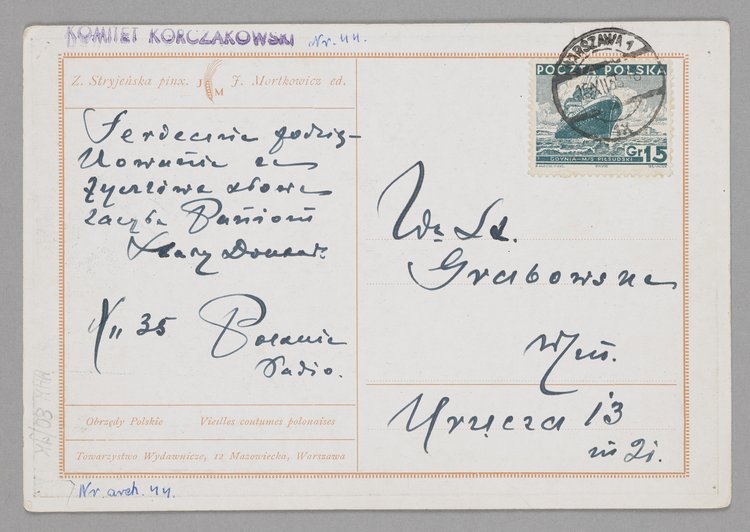 KOMITET KORCZAKOWSKI Nr. 44.
Z. Stryjeńska pinx. J M J. Mortkowicz ed.
Serdeczne podzię-
kowanie za
życzliwe słowa
łączę Paniom
Stary Doktór.
XII 35 Polskie
Radio.
WARSZAWA 1
POCZTA POLSKA
Gr 15
GDYNIA - M/S PIŁSUDSKI
W. Sz.
Grabowska
w/m.
Krucza 13
m 21.
Obrzędy Polskie Vieilles coutumes polonaises
Towarzystwo Wydawnicze, 12 Mazowiecka, Warszawa
Nr. arch. 44.